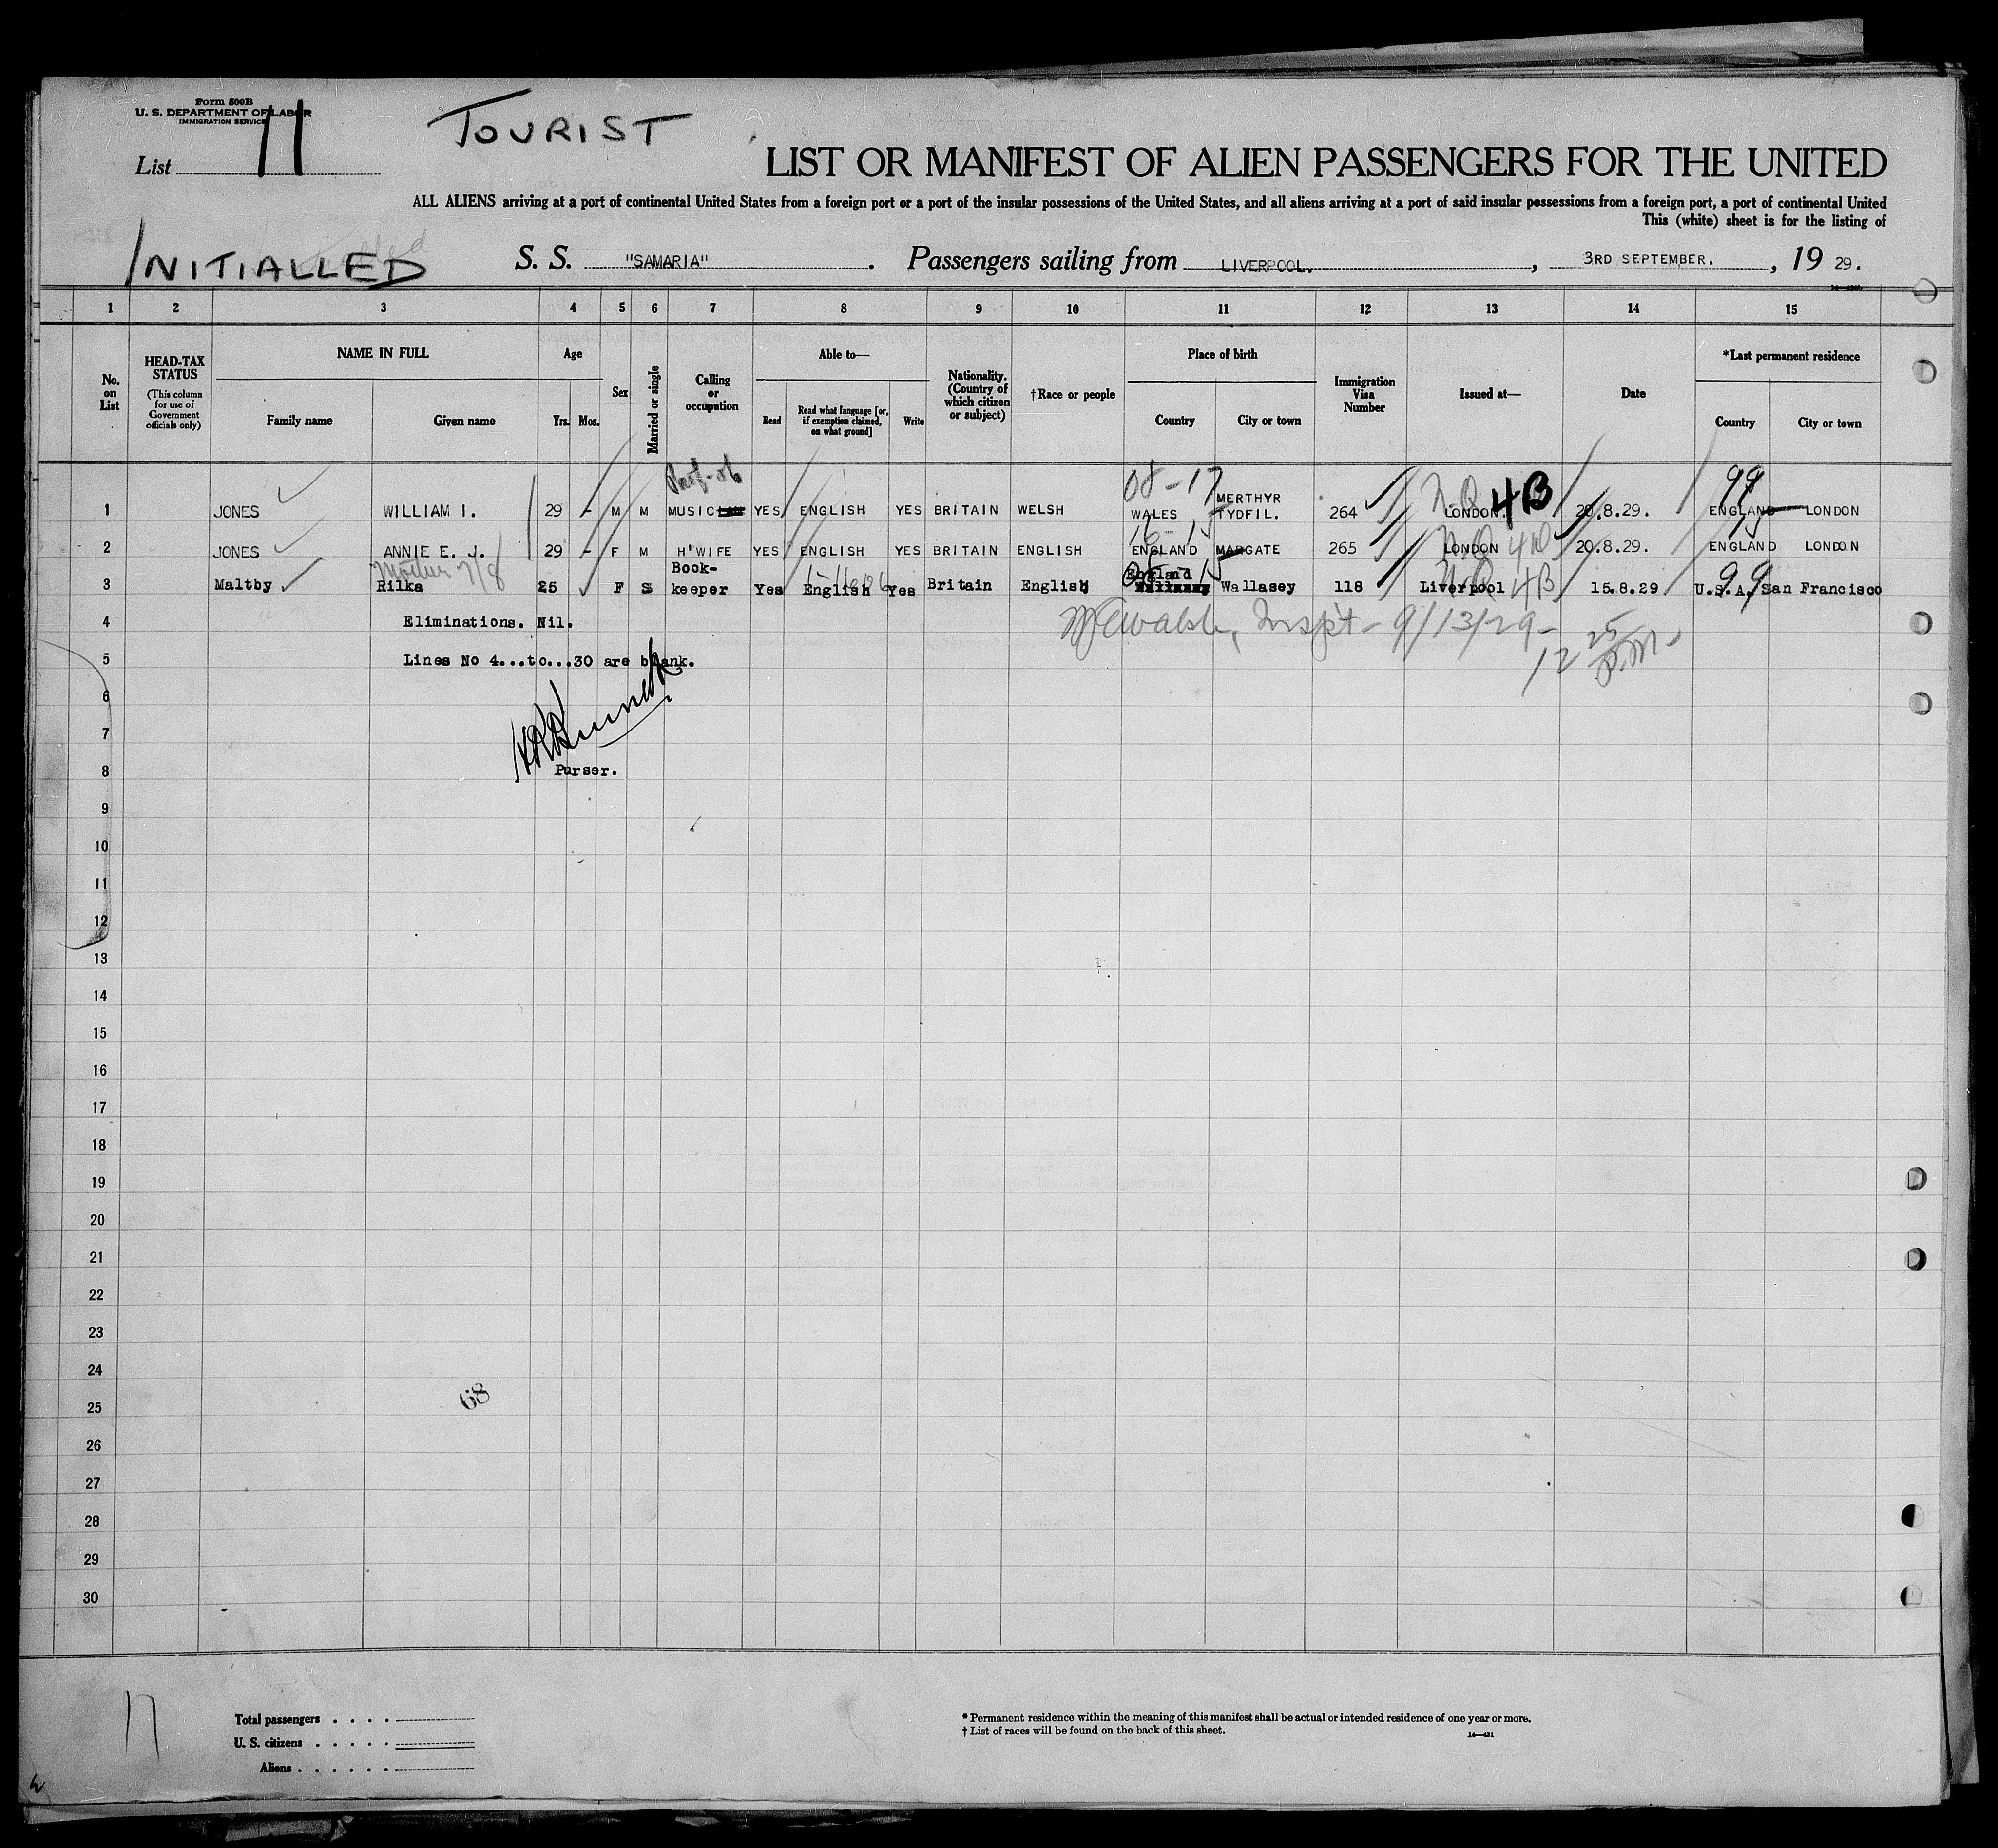 Form 500B
U. S. DEPARTMENT OF LABOR
IMMIGRATION SERVICE
List 11
TOURIST
LIST OR MANIFEST OF ALIEN PASSENGERS FOR THE UNITED
ALL ALIENS arriving at a port of continental United States from a foreign port or a port of the insular possessions of the United States, and all aliens arriving at a port of said insular possessions from a foreign port, a port of continental United
This (white) sheet is for the listing of
INITIALLED
S. S. "SAMARIA". Passengers sailing from LIVERPOOL., 3RD SEPTEMBER., 19 29.
1 2 3 4 5 6 7 8 9 10 11 12 13 14 15
No. on List
HEAD-TAX STATUS
(This column for use of Government officials only)
NAME IN FULL
Family name Given name
Age
Yrs. Mos.
Sex
Married or single
Calling or occupation
Able to—
Read
Read what language [or, if exemption claimed, on what ground]
Write
Nationality. (Country of which citizen or subject)
†Race or people
Place of birth
Country City or town
Immigration Visa Number
Issued at—
Date
*Last permanent residence
Country City or town
08-17 99
1 JONES WILLIAM I. 29 - M M MUSICIAN YES ENGLISH YES BRITAIN WELSH WALES MERTHYR TYDFIL. 264 LONDON. 4B 20.8.29. ENGLAND LONDON
2 JONES ANNIE E. J. 29 - F M H'WIFE YES ENGLISH YES BRITAIN ENGLISH ENGLAND MARGATE 265 LONDON 20.8.29. ENGLAND LONDON
3 Maltby Rilka 25 F S Book-keeper Yes English Yes Britain English England Wallasey 118 Liverpool 4B 15.8.29 U.S.A. San Francisco
99
4 Eliminations. Nil.
Walsh, Inspt - 9/13/29 -
12 25 P.M.
5 Lines No 4...to...30 are blank.
6
7
8 Purser.
9
10
11
12
13
14
15
16
17
18
19
20
21
22
23
24
68
25
26
27
28
29
30
Total passengers . . . .
U. S. citizens . . . . .
Aliens . . . . . .
* Permanent residence within the meaning of this manifest shall be actual or intended residence of one year or more.
† List of races will be found on the back of this sheet.
14—421